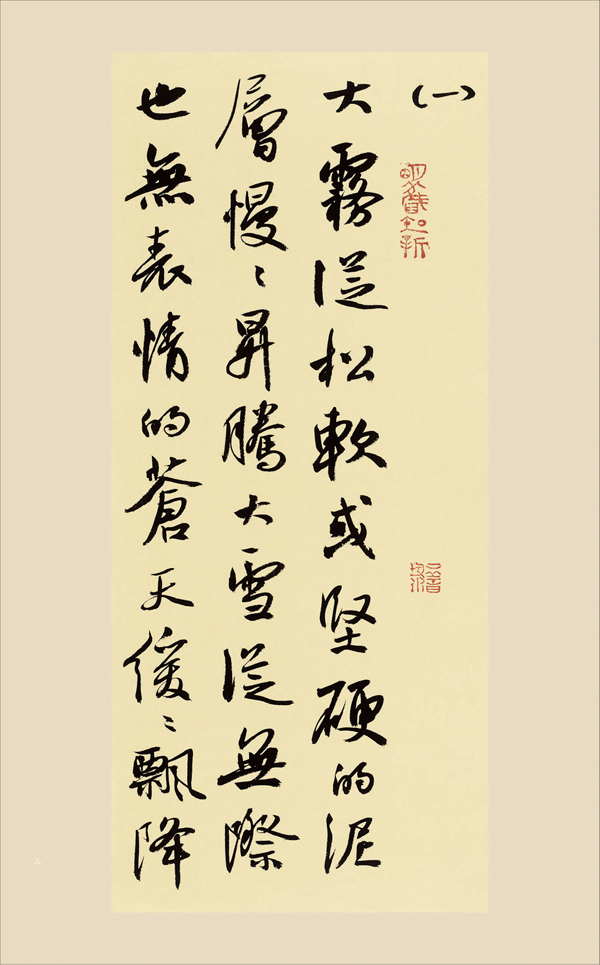 (一)
大霧從松軟或堅硬的泥
層慢〻昇騰大雪從無際
也無表情的蒼天緩〻飄降